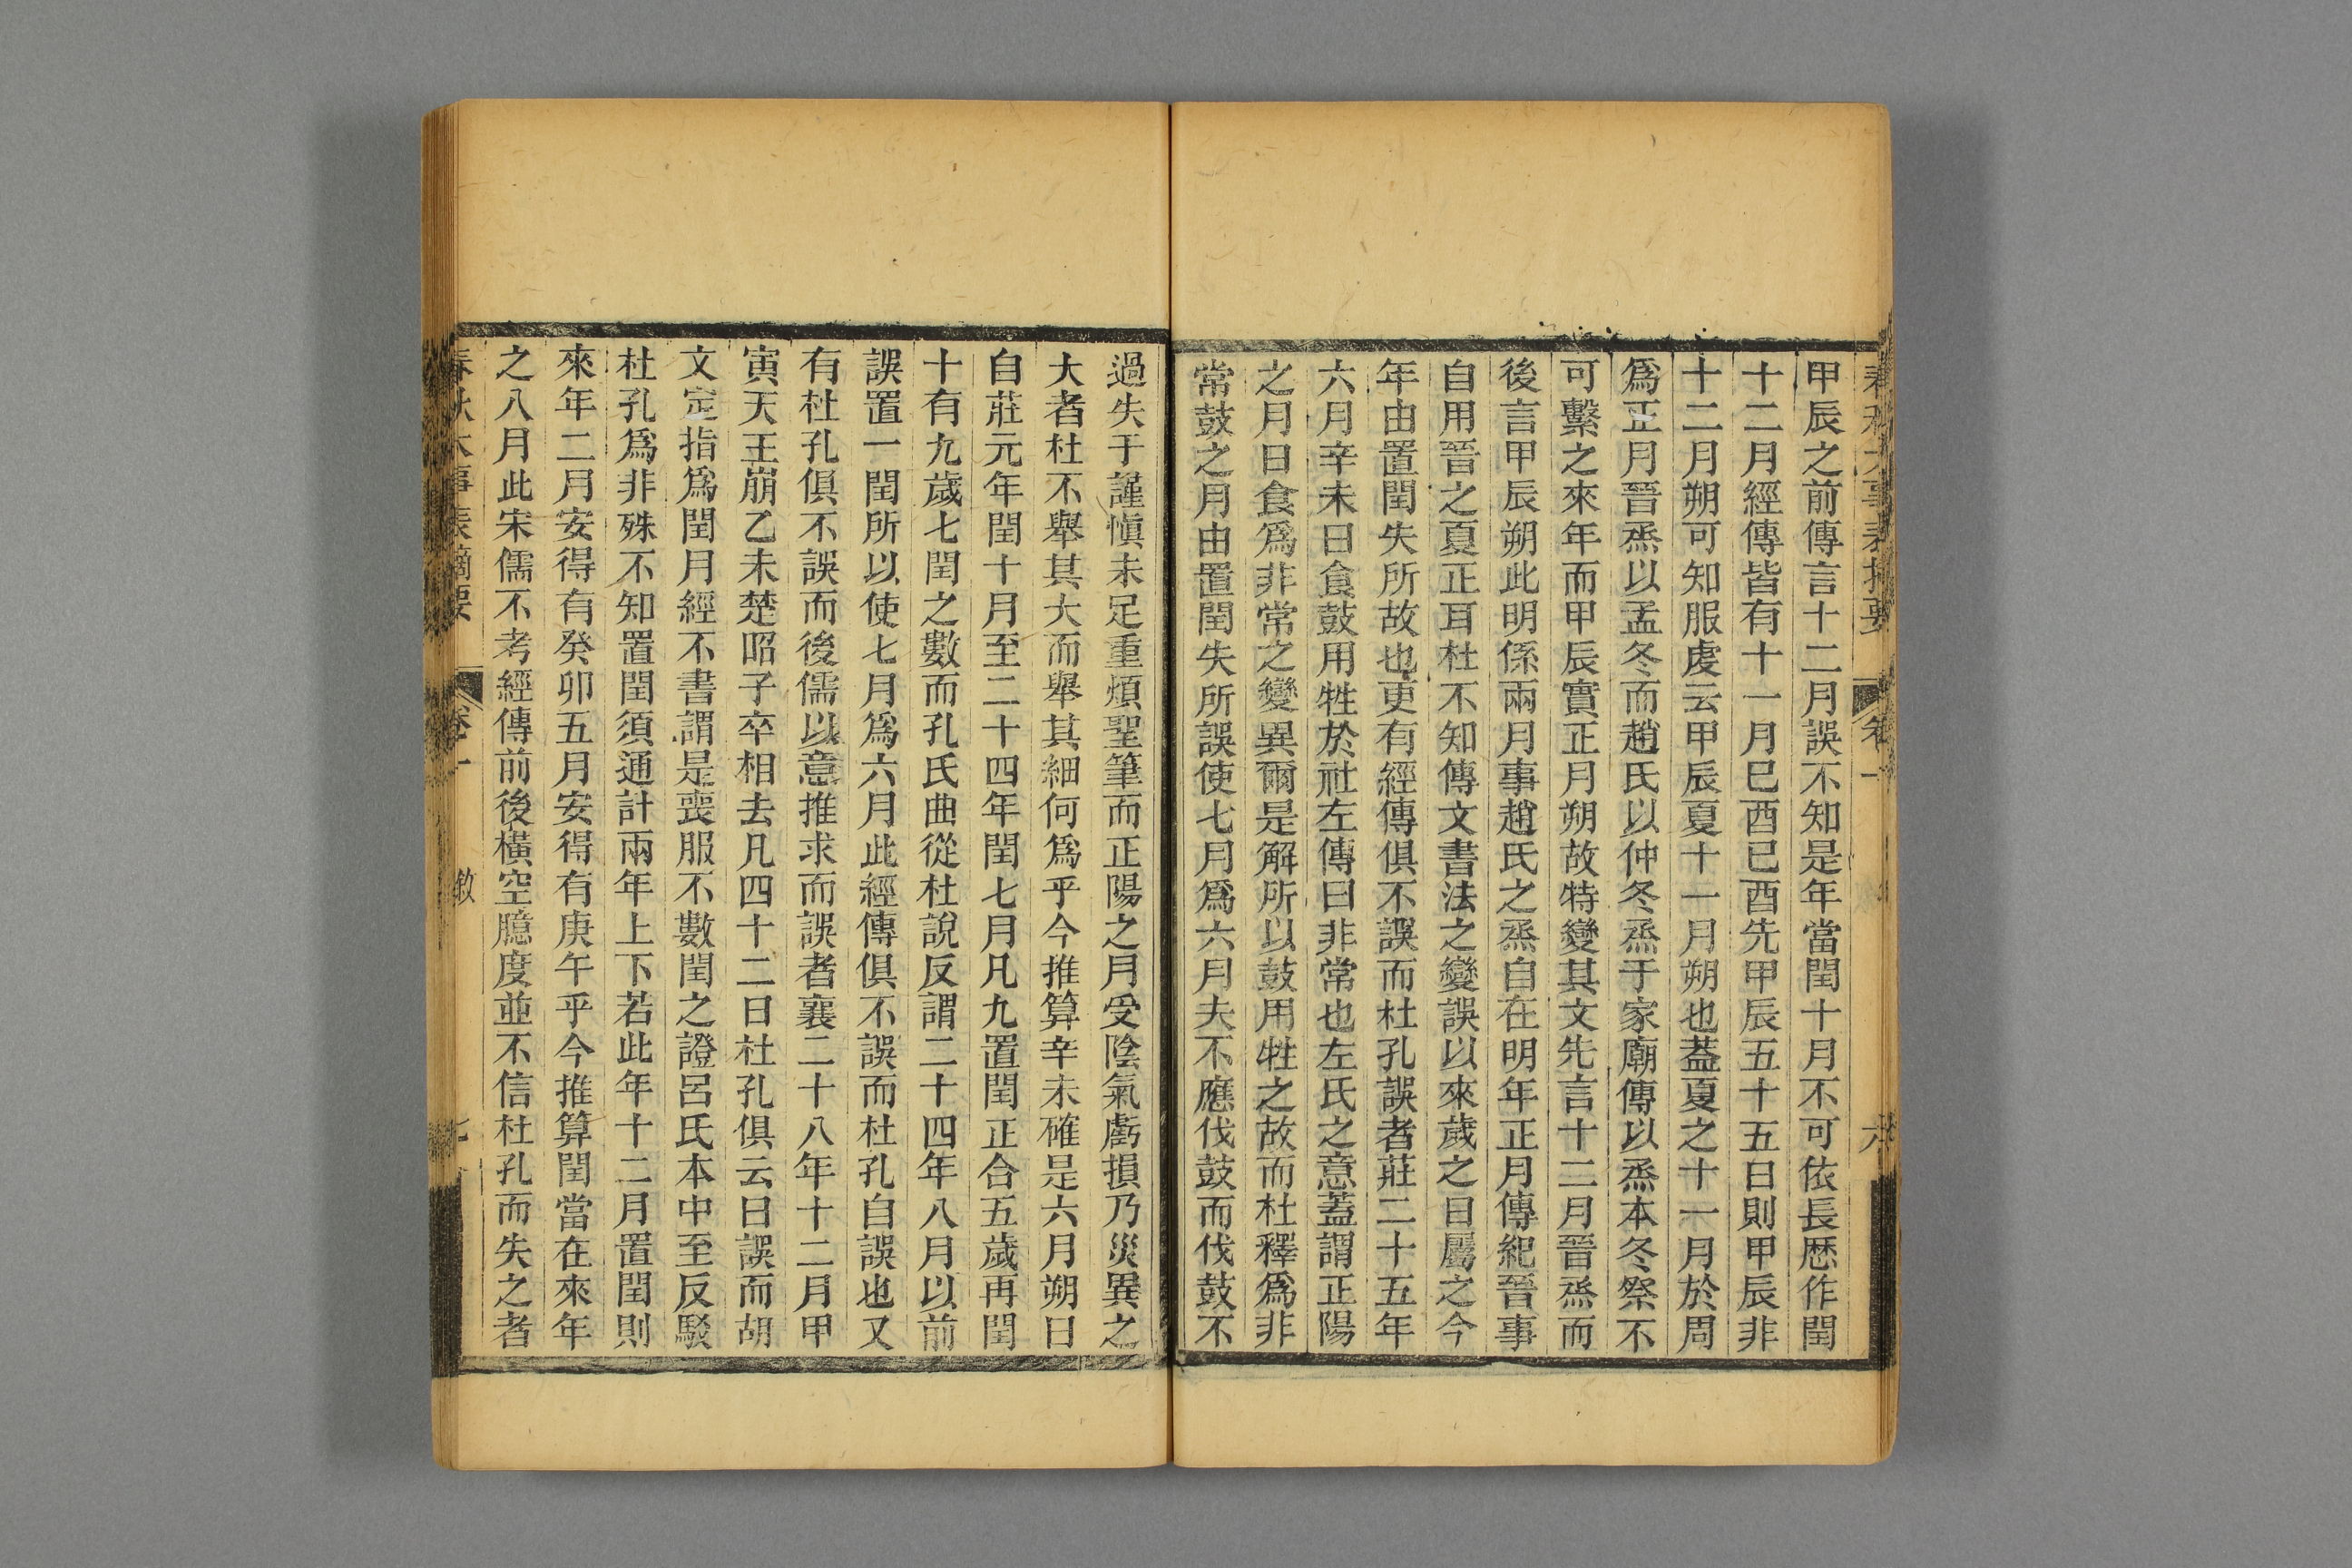 春秋大事表摘要 卷一 六
甲辰之前傳言十二月誤不知是年當閏十月不可依長歷作閏
十二月經傳皆有十一月巳酉已酉先甲辰五十五日則甲辰非
十二月朔可知服虔云甲辰夏十一月朔也葢夏之十一月於周
爲正月晉烝以孟冬而趙氏以仲冬烝于家廟傳以烝本冬祭不
可繫之來年而甲辰實正月朔故特變其文先言十二月晉烝而
後言甲辰朔此明係兩月事趙氏之烝自在明年正月傳紀晉事
自用晉之夏正耳杜不知傳文書法之變誤以來歲之日屬之今
年由置閏失所故也更有經傳俱不誤而杜孔誤者莊二十五年
六月辛未日食鼓用牲於社左傳曰非常也左氏之意葢謂正陽
之月日食爲非常之變異爾是解所以鼓用牲之故而杜釋爲非
常鼓之月由置閏失所誤使七月爲六月夫不應伐鼓而伐鼓不
過失于謹愼未足重煩聖筆而正陽之月受陰氣虧損乃災異之
大者杜不舉其大而舉其細何爲乎今推算辛未確是六月朔日
自莊元年閏十月至二十四年閏七月凡九置閏正合五歲再閏
十有九歲七閏之數而孔氏曲從杜說反謂二十四年八月以前
誤置一閏所以使七月爲六月此經傳俱不誤而杜孔自誤也又
有杜孔俱不誤而後儒以意推求而誤者襄二十八年十二月甲
寅天王崩乙未楚昭子卒相去凡四十二日杜孔俱云日誤而胡
文定指爲閏月經不書謂是喪服不數閏之證呂氏本中至反駁
杜孔爲非殊不知置閏須通計兩年上下若此年十二月置閏則
來年二月安得有癸卯五月安得有庚午乎今推算閏當在來年
之八月此宋儒不考經傳前後橫空臆度並不信杜孔而失之者
春秋大事表摘要 卷一 敘 七